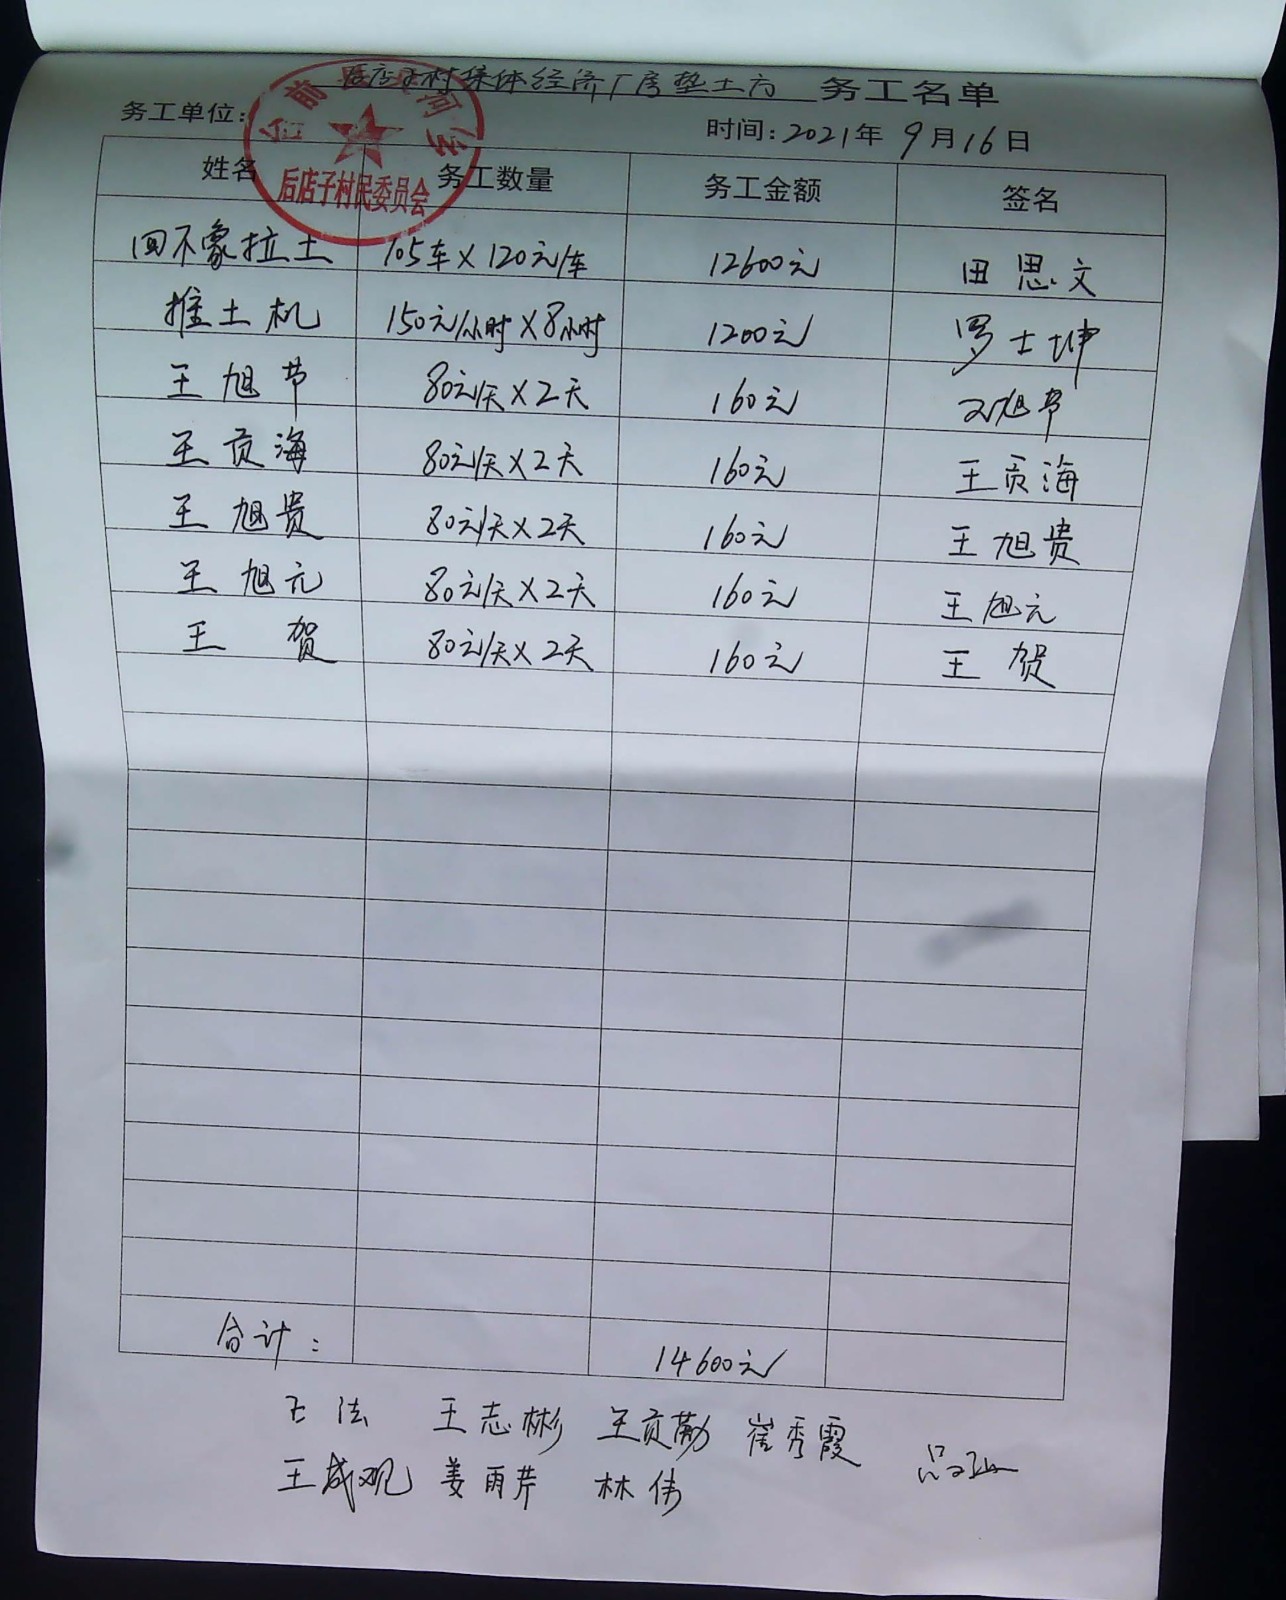 后店子村集体经济厂房垫土方 务工名单
务工单位：
台前 河乡
后店子村民委员会
时间：2021年9月16日
姓名 务工数量 务工金额 签名
回不象拉土 105车×120元/车 12600元 田思文
推土机 150元/小时×8小时 1200元 罗士坤
王旭节 80元/天×2天 160元 王旭节
王贡海 80元/天×2天 160元 王贡海
王旭贵 80元/天×2天 160元 王旭贵
王旭元 80元/天×2天 160元 王旭元
王贺 80元/天×2天 160元 王贺
合计： 14600元
王法 王志彬 王贡勤 崔秀霞
王成观 姜雨芹 林伟